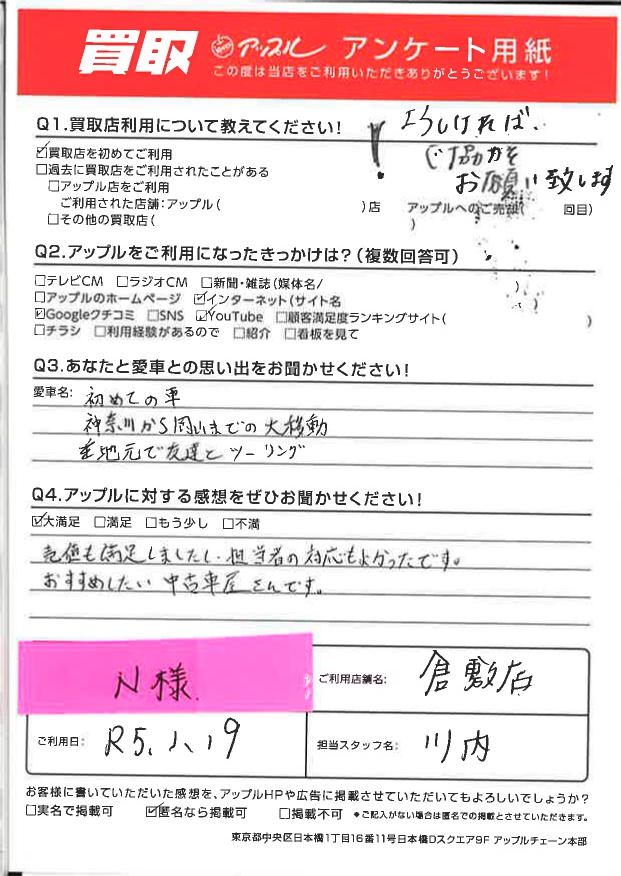 買取 アップル アンケート用紙
この度は当店をご利用いただきありがとうございます!
Q1.買取店利用について教えてください!
! よろしければ、
ご協力を
お願い致します
☑買取店を初めてご利用
□過去に買取店をご利用されたことがある
□アップル店をご利用
ご利用された店舗:アップル( )店 アップルへのご売却( 回目)
□その他の買取店( )
Q2.アップルをご利用になったきっかけは?(複数回答可)
□テレビCM □ラジオCM □新聞・雑誌(媒体名/ )
□アップルのホームページ ☑インターネット(サイト名 )
☑Googleクチコミ □SNS ☑YouTube □顧客満足度ランキングサイト( )
□チラシ □利用経験があるので □紹介 □看板を見て
Q3.あなたと愛車との思い出をお聞かせください!
愛車名: 初めての車
神奈川から岡山までの大移動
地元で友達とツーリング
Q4.アップルに対する感想をぜひお聞かせください!
☑大満足 □満足 □もう少し □不満
売値も満足しましたし、担当者の対応もよかったです。
おすすめしたい中古車屋さんです。
N様
ご利用店舗名: 倉敷店
ご利用日: R5.1.19
担当スタッフ名: 川内
お客様に書いていただいた感想を、アップルHPや広告に掲載させていただいてもよろしいでしょうか?
□実名で掲載可 ☑匿名なら掲載可 □掲載不可 *ご記入がない場合は匿名での掲載とさせていただきます。
東京都中央区日本橋1丁目16番11号日本橋Dスクエア9F アップルチェーン本部